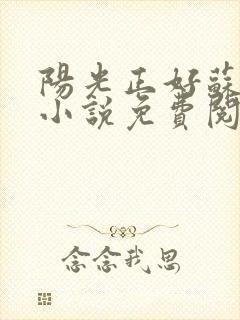 陽光正好蘇
小說免費閱
念念我思